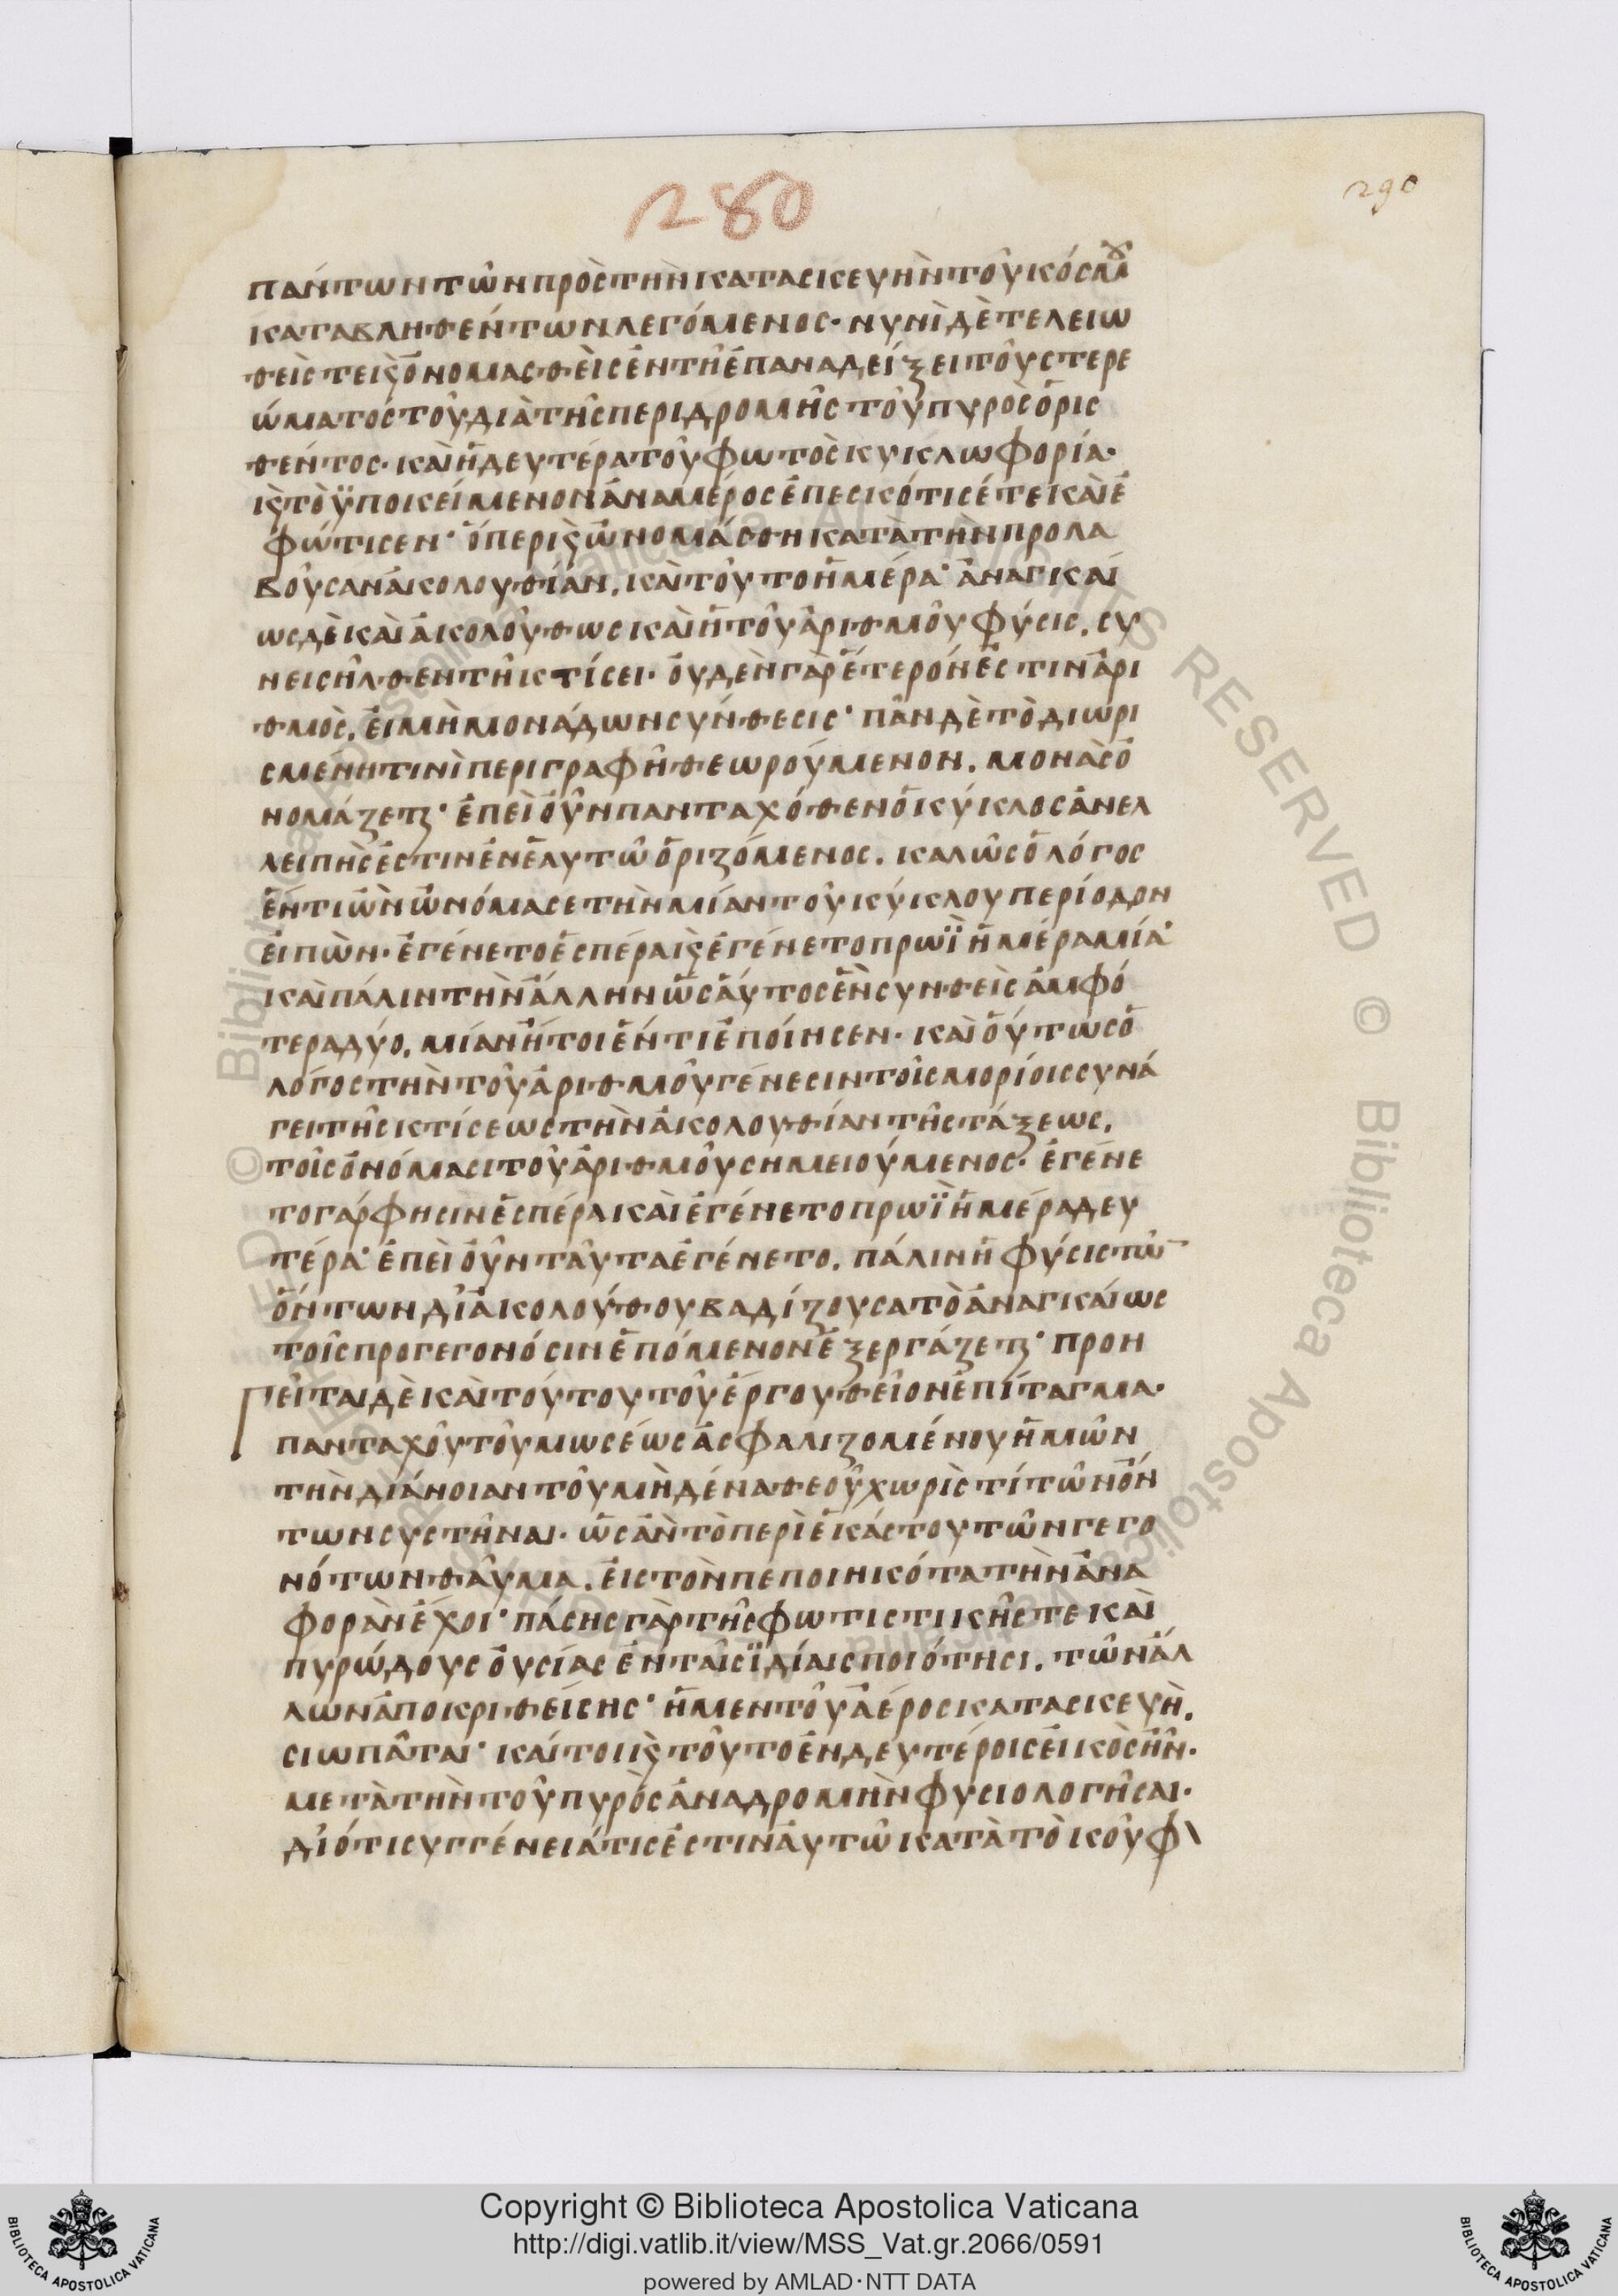 280
290
πάντων τῶν πρὸς τὴν κατασκευὴν τοῦ κόσμου
καταβληθέντων λεγόμενος· νυνὶ δὲ τελειω
θεὶς τεῖς ὀνομασθεὶς ἐν τῇ ἐπαναδείξει τοῦ στερε
ώματος τοῦ διὰ τῆς περιδρομῆς τοῦ πυρὸς ὁρισ
θέντος· καὶ ἡ δευτέρα τοῦ φωτὸς κυκλωφορία·
κς τὸ ὑποκείμενον ἀναμέρος ἐπεσκότισέ τε καὶ ἐ
φώτισεν· ὅπερ κς ὠνομάσθη κατὰ τὴν προλα
βοῦσαν ἀκολουθίαν, καὶ τοῦτο ἡμέρα· ἀναγκαί
ως δὲ καὶ ἀκολούθως καὶ ἡ τοῦ ἀριθμοῦ φύσις, συ
νεισῆλθεν τῇ κτίσει· οὐδὲν γὰρ ἕτερόν ἐστιν ἀρι
θμὸς, εἰ μὴ μονάδων σύνθεσις· πᾶν δὲ τὸ διωρι
σμένῃ τινὶ περιγραφῇ θεωρούμενον, μονὰς ὀ
νομάζεται· ἐπεὶ οὖν πανταχόθεν ὁ κύκλος ἀνελ
λειπής ἐστιν ἐν ἑαυτῷ ὁριζόμενος, καλῶς ὁ λόγος
ἕν τι ὢν ὠνόμασε τὴν μίαν τοῦ κύκλου περίοδον
εἰπὼν· ἐγένετο ἑσπέρα κς ἐγένετο πρωῒ ἡμέρα μία·
καὶ πάλιν τὴν ἄλλην ὡσαύτος ἓν συνθεὶς ἀμφό
τερα δύο, μίαν ἤτοι ἕν τι ἐποίησεν· καὶ οὕτως ὁ
λόγος τὴν τοῦ ἀριθμοῦ γένεσιν τοῖς μορίοις συνά
γει τῆς κτίσεως τὴν ἀκολουθίαν τῆς τάξεως,
τοῖς ὀνόμασι τοῦ ἀριθμοῦ σημειούμενος· ἐγένε
το γάρ φησιν ἑσπέρα καὶ ἐγένετο πρωῒ ἡμέρα δευ
τέρα· ἐπεὶ οὖν ταῦτα ἐγένετο, πάλιν ἡ φύσις τῶν
ὄντων δι' ἀκολούθου βαδίζουσα τὸ ἀναγκαίως
τοῖς προγεγονόσιν ἑπόμενον ἐξεργάζεται· προη
γεῖται δὲ καὶ τούτου τοῦ ἔργου θεῖον ἐπίταγμα·
πανταχοῦ τοῦ μωσέως ἀσφαλιζομένου ἡμῶν
τὴν διάνοιαν τοῦ μὴ δένα θεοῦ χωρὶς τί τῶν ὄν
των συστῆναι· ὡς ἂν τὸ περὶ ἑκάστου τῶν γεγο
νότων θαῦμα, εἰς τὸν πεποιηκότα τὴν ἀνα
φορὰν ἔχοι· πάσης γὰρ τῆς φωτιστικῆς τε καὶ
πυρώδους οὐσίας ἐν ταῖς ἰδίαις ποιότησι, τῶν ἄλ
λων ἀποκριθείσης· ἡ μεν τοῦ ἀέρος κατασκευὴ,
σιωπᾶται· καίτοι κς τοῦτο ἐν δευτέροις εἰκὸς ἦν·
μετὰ τὴν τοῦ πυρὸς ἀναδρομὴν φυσιολογῆσαι·
διότι συγγένειά τις ἐστιν αὐτῷ κατὰ τὸ κοῦφ
Copyright © Biblioteca Apostolica Vaticana
http://digi.vatlib.it/view/MSS_Vat.gr.2066/0591
powered by AMLAD·NTT DATA